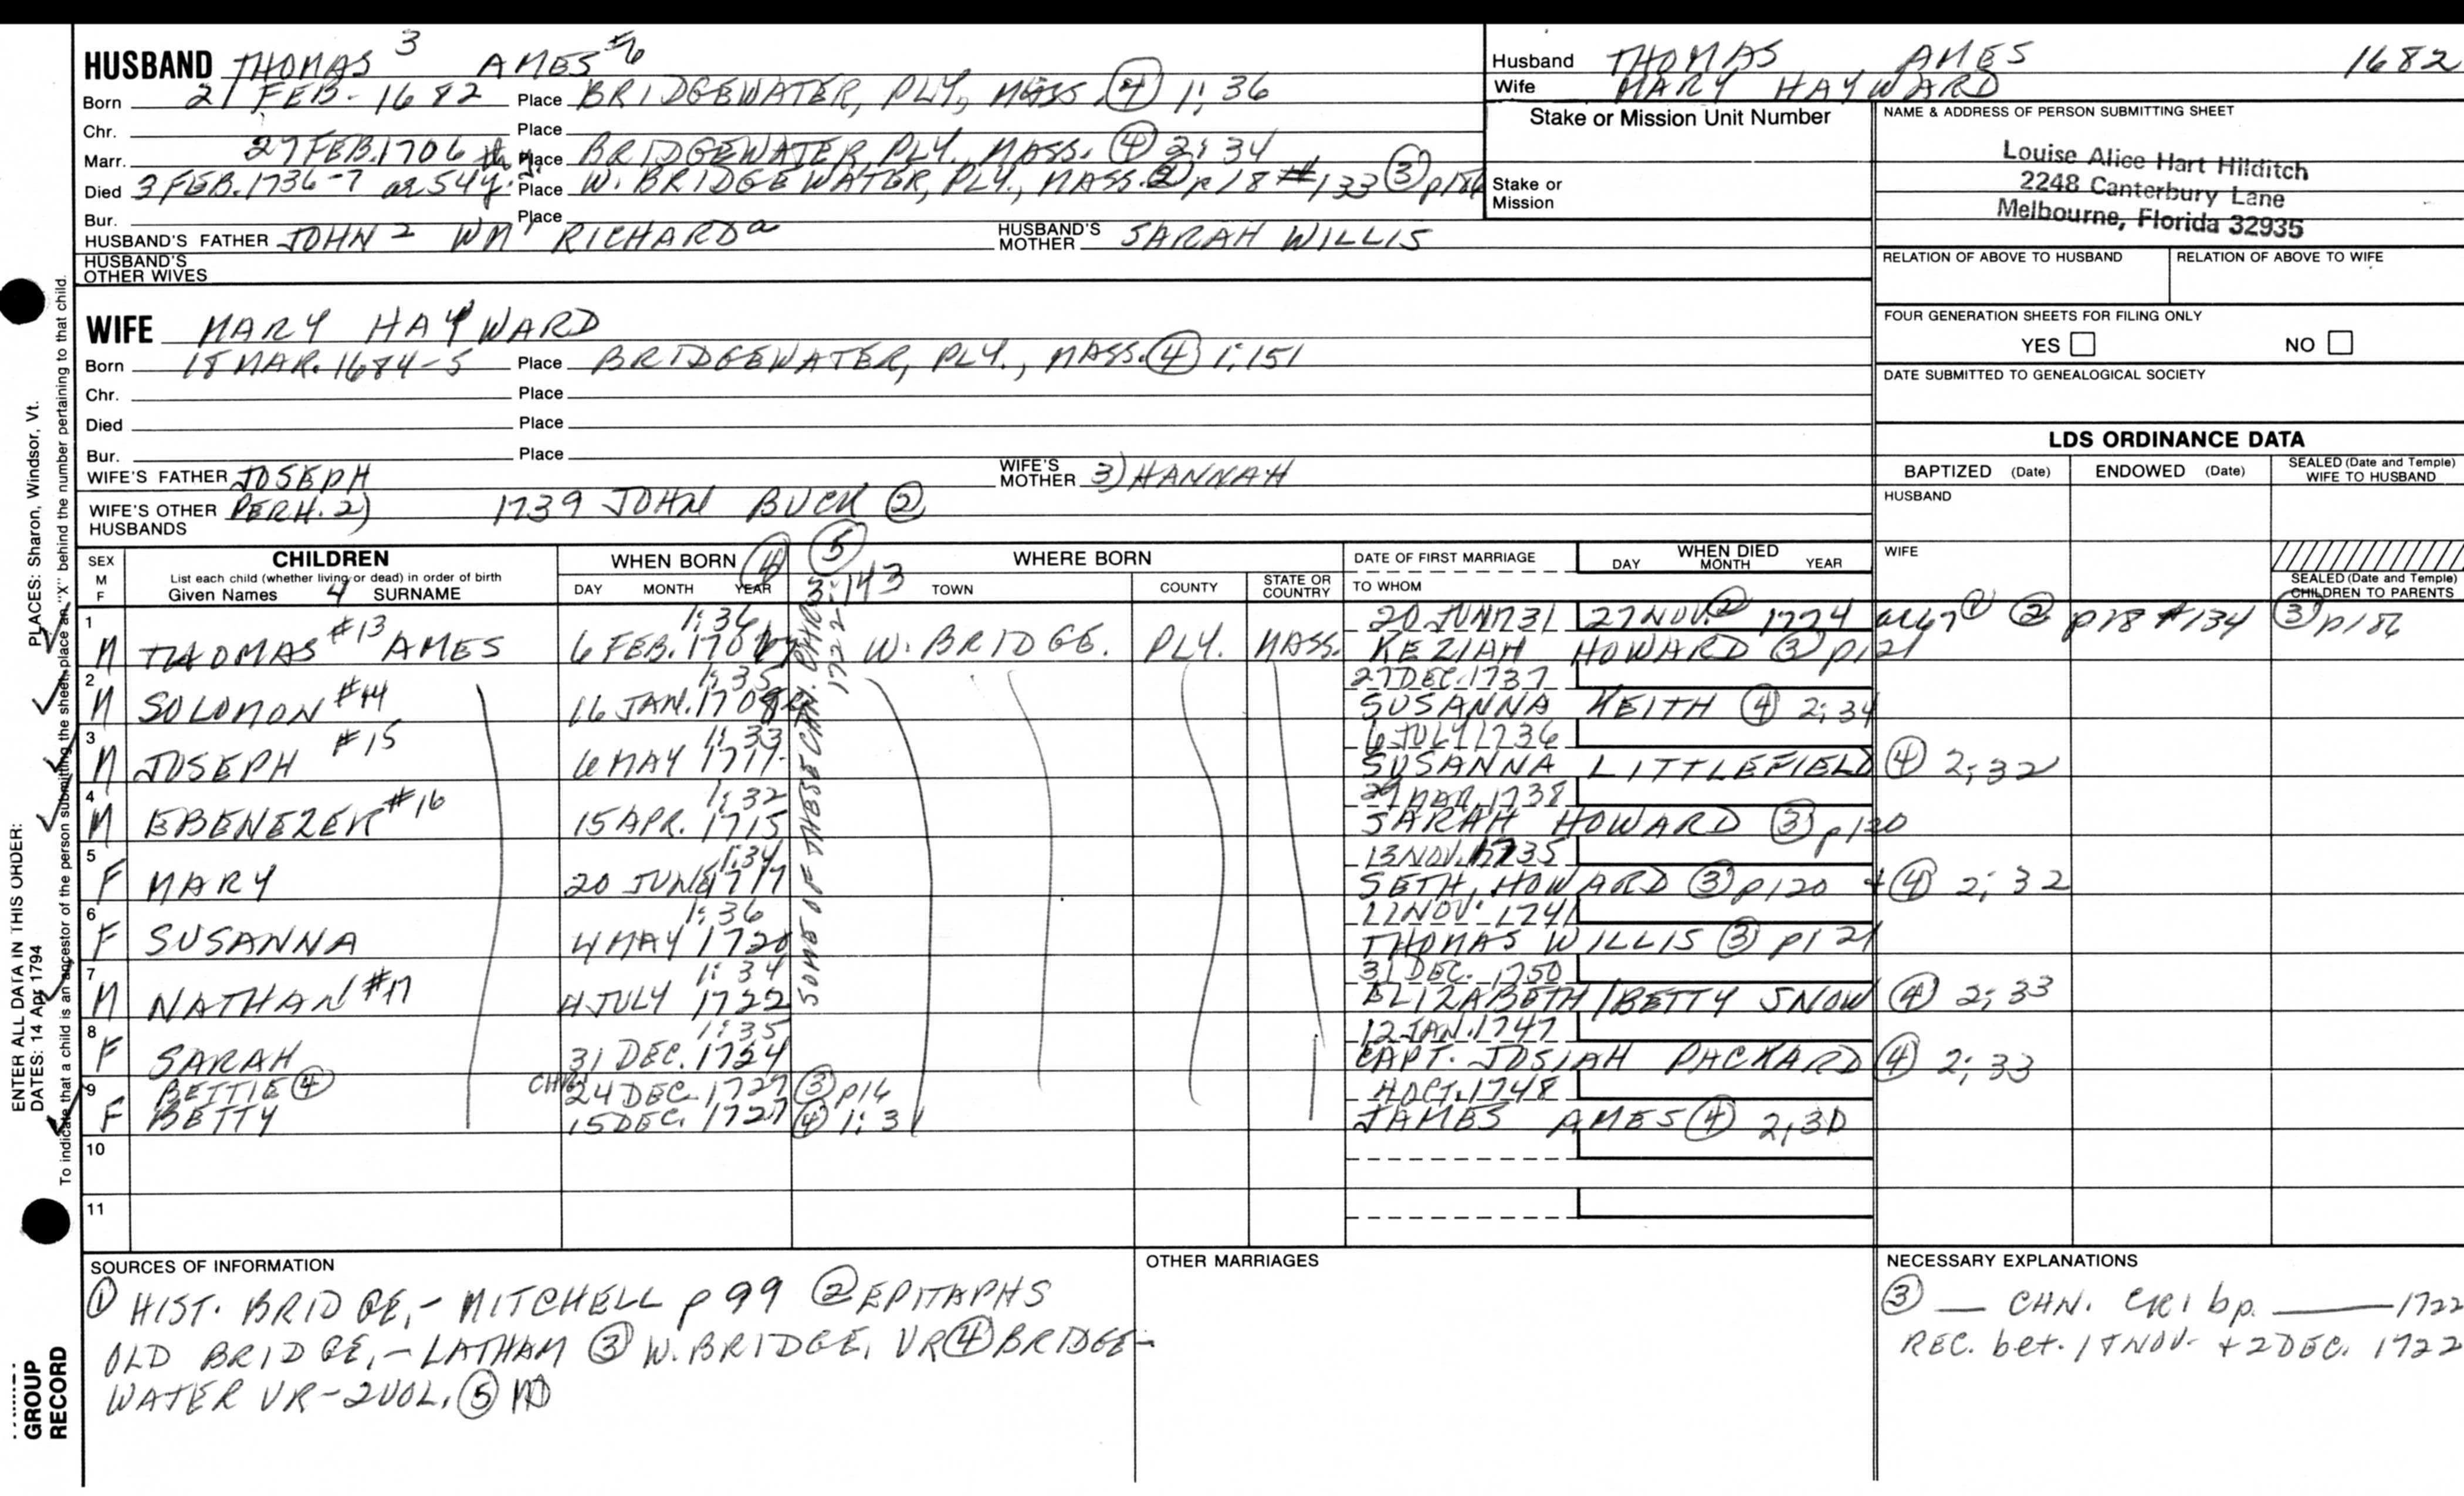 HUSBAND THOMAS 3 AMES #6
Born 21 FEB. 1682 Place BRIDGEWATER, PLY, MASS. ④ 1:36
Chr. Place
Marr. 27 FEB. 1706 Place BRIDGEWATER, PLY. MASS. ④ 2:34
Died 3 FEB. 1736-7 ae 54y. Place W. BRIDGEWATER, PLY., MASS. ② p18 #133 ③ p186
Bur. Place
HUSBAND'S FATHER JOHN 2 WM 1 RICHARD a HUSBAND'S MOTHER SARAH WILLIS
HUSBAND'S OTHER WIVES
Husband THOMAS AMES 1682
Wife MARY HAYWARD
Stake or Mission Unit Number
Stake or Mission
NAME & ADDRESS OF PERSON SUBMITTING SHEET
Louise Alice Hart Hilditch
2248 Canterbury Lane
Melbourne, Florida 32935
RELATION OF ABOVE TO HUSBAND RELATION OF ABOVE TO WIFE
FOUR GENERATION SHEETS FOR FILING ONLY
YES NO
DATE SUBMITTED TO GENEALOGICAL SOCIETY
WIFE MARY HAYWARD
Born 18 MAR. 1684-5 Place BRIDGEWATER, PLY., MASS. ④ 1:151
Chr. Place
Died Place
Bur. Place
WIFE'S FATHER JOSEPH WIFE'S MOTHER 3) HANNAH
WIFE'S OTHER HUSBANDS PERH. 2) 1739 JOHN BUCK ②
LDS ORDINANCE DATA
BAPTIZED (Date) ENDOWED (Date) SEALED (Date and Temple) WIFE TO HUSBAND
HUSBAND
WIFE
SEALED (Date and Temple) CHILDREN TO PARENTS
SEX M F CHILDREN WHEN BORN ④ ⑤ 3:143 WHERE BORN DATE OF FIRST MARRIAGE WHEN DIED
List each child (whether living or dead) in order of birth
Given Names 4 SURNAME DAY MONTH YEAR TOWN COUNTY STATE OR COUNTRY TO WHOM DAY MONTH YEAR
SOME OF THESE CHN.
1722
1 1:36 20 JUN 1731 27 NOV. ② 1774 ae 67 ① ② p18 #134 ③ p186
M THOMAS #13 AMES 6 FEB. W. BRIDGE. PLY. MASS. KEZIAH HOWARD ③ p121
2 1:35 27 DEC. 1737
M SOLOMON #14 16 JAN. SUSANNA KEITH ④ 2:34
3 1:33 6 JULY 1736
M JOSEPH #15 6 MAY SUSANNA LITTLEFIELD ④ 2:32
4 1:32 MAR. 1738
M EBENEZER #16 15 APR. 1715 SARAH HOWARD ③ p120
5 1:34 13 NOV. 1735
F MARY 20 JUNE 1717 SETH HOWARD ③ p120 + ④ 2:32
6 1:36 NOV. 1741
F SUSANNA 4 MAY 1720 THOMAS WILLIS ③ p121
7 1:34 31 DEC. 1750
M NATHAN #17 4 JULY 1722 ELIZABETH/BETTY SNOW ④ 2:33
8 1:35 12 JAN. 1747
F SARAH 31 DEC. 1724 CAPT. JOSIAH PACKARD ④ 2:33
9 BETTIE ④ CHR 24 DEC. 1727 ③ p16 4 OCT. 1748
F BETTY 15 DEC. 1727 ④ 1:31 JAMES AMES ④ 2:30
10
11
SOURCES OF INFORMATION
① HIST. BRIDGE, - MITCHELL p 99 ② EPITAPHS
OLD BRIDGE, - LATHAM ③ W. BRIDGE, VR ④ BRIDGE-
WATER VR - 2 VOL. ⑤
OTHER MARRIAGES
NECESSARY EXPLANATIONS
③ — CHN. CR1 bp. — 1722
REC. bet. 18 NOV. + 2 DEC. 1722
ENTER ALL DATA IN THIS ORDER:
PLACES: Sharon, Windsor, Vt.
DATES: 14 Apr 1794
To indicate that a child is an ancestor of the person submitting the sheet, place an "X" behind the number pertaining to that child.
GROUP
RECORD